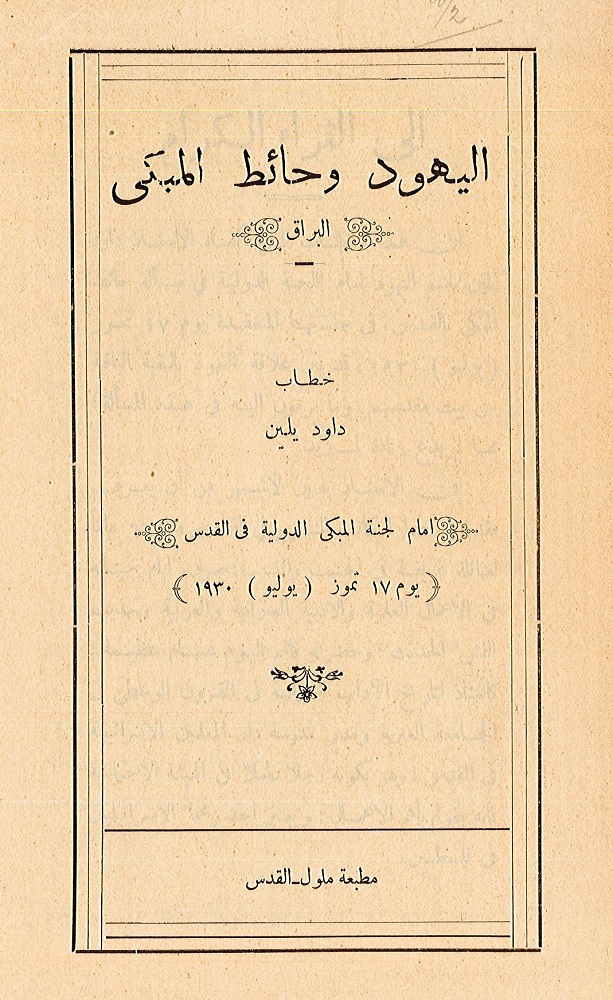 اليهود وحائط المبنى
البراق
خطاب
داود يلين
امام لجنة المبكى الدولية فى القدس
(يوم ١٧ تموز (يوليو) ١٩٣٠)
مطبعة ملول-القدس